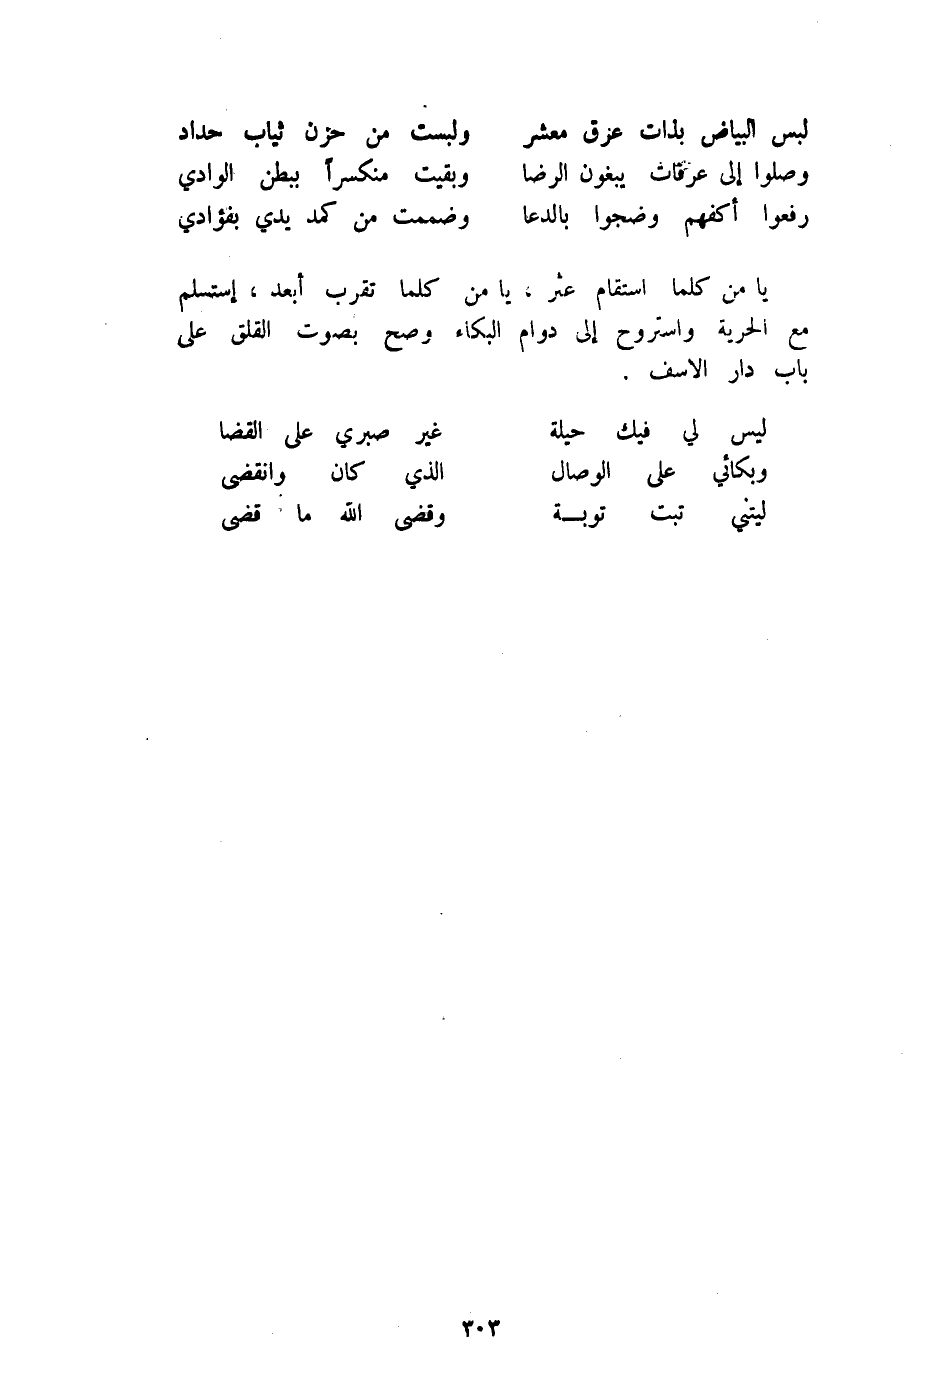 لبس البياض بذات عزق معشر ولبست من حزن ثياب حداد
وصلوا إلى عرفات يبغون الرضا وبقيت منكسراً ببطن الوادي
رفعوا أكفهم وضجوا بالدعا وضممت من كمد يدي بفؤادي
يا من كلما استقام عثر ، يا من كلما تقرب أبعد ، إستسلم
مع الحرية واستروح إلى دوام البكاء وصح بصوت القلق على
باب دار الاسف .
ليس لي فيك حيلة غير صبري على القضا
وبكائي على الوصال الذي كان وانقضى
ليتني تبت توبـــة وقضى الله ما قضى
٣٠٣